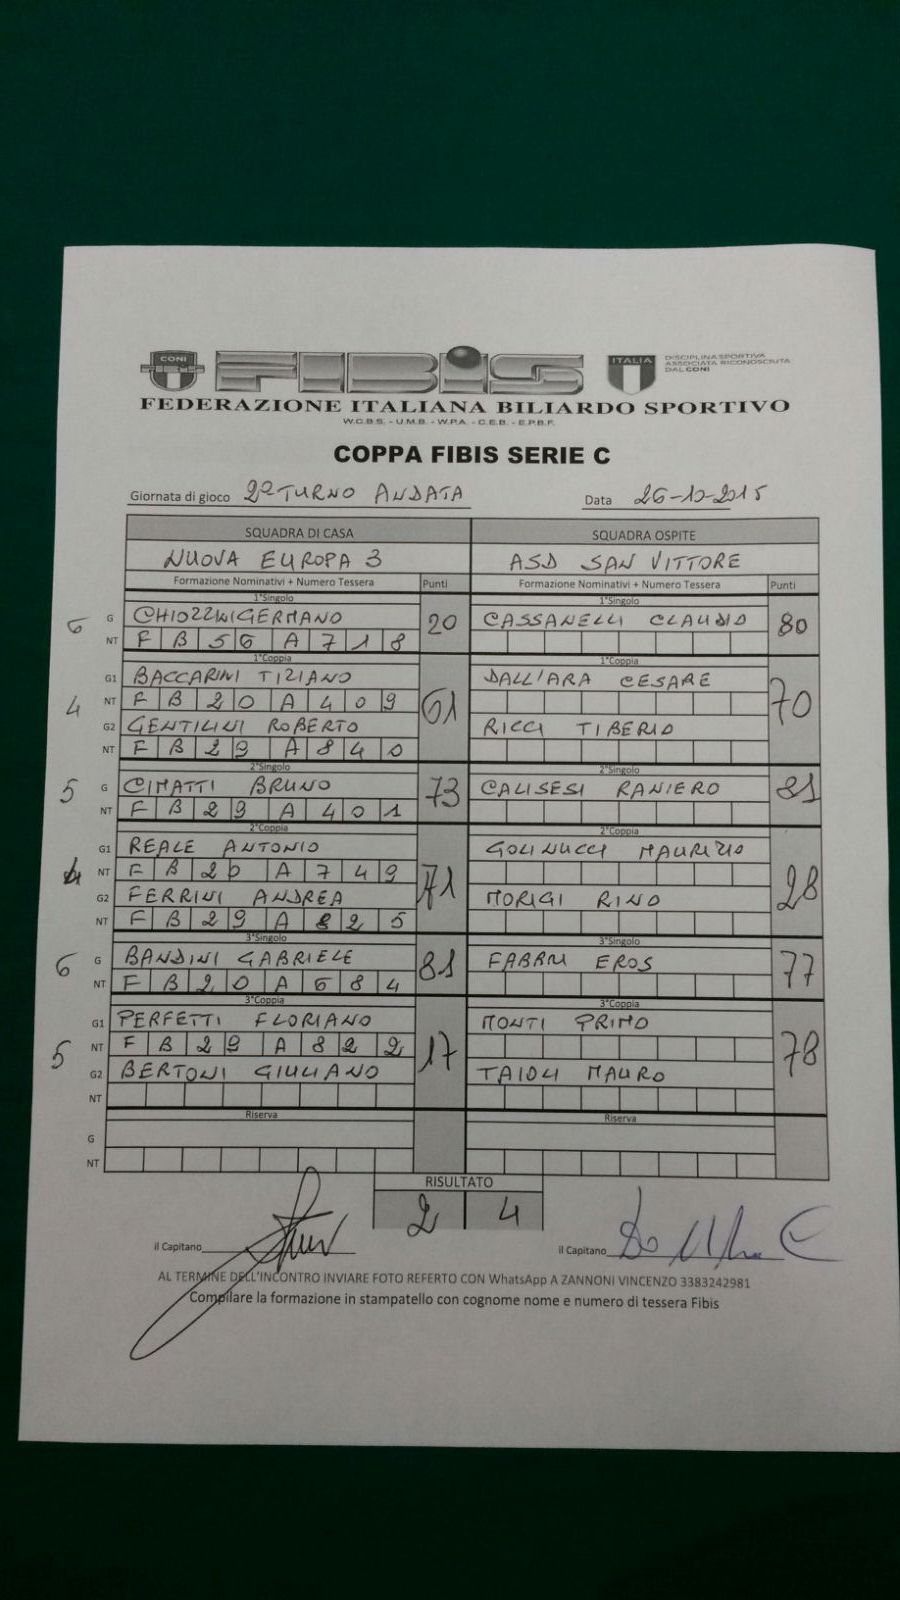 CONI
FIBIS
ITALIA
DISCIPLINA SPORTIVA
ASSOCIATA RICONOSCIUTA
DAL CONI
FEDERAZIONE ITALIANA BILIARDO SPORTIVO
W.C.B.S. - U.M.B. - W.P.A. - C.E.B. - E.P.B.F.
COPPA FIBIS SERIE C
Giornata di gioco 2° TURNO ANDATA Data 26-10-2015
SQUADRA DI CASA SQUADRA OSPITE
NUOVA EUROPA 3 ASD SAN VITTORE
Formazione Nominativi + Numero Tessera Punti Formazione Nominativi + Numero Tessera Punti
1°Singolo 1°Singolo
6 G CHIOZZINI GERMANO 20 CASSANELLI CLAUDIO 80
NT F B 5 6 A 7 1 8
1°Coppia 1°Coppia
G1 BACCARINI TIZIANO DALL'ARA CESARE
4 NT F B 2 0 A 4 0 9 61 70
G2 GENTILINI ROBERTO RICCI TIBERIO
NT F B 2 9 A 8 4 0
2°Singolo 2°Singolo
5 G CIMATTI BRUNO 73 CALISESI RANIERO 81
NT F B 2 9 A 4 0 1
2°Coppia 2°Coppia
G1 REALE ANTONIO GOLINUCCI MAURIZIO
4 NT F B 2 0 A 7 4 9 71 28
G2 FERRINI ANDREA MORIGI RINO
NT F B 2 9 A 8 2 5
3°Singolo 3°Singolo
6 G BANDINI GABRIELE 81 FABBRI EROS 77
NT F B 2 0 A 6 8 4
3°Coppia 3°Coppia
G1 PERFETTI FLORIANO MONTI PRIMO
5 NT F B 2 9 A 8 2 2 17 78
G2 BERTONI GIULIANO TAIOLI MAURO
NT
Riserva Riserva
G
NT
RISULTATO
2 4
il Capitano il Capitano
AL TERMINE DELL'INCONTRO INVIARE FOTO REFERTO CON WhatsApp A ZANNONI VINCENZO 3383242981
Compilare la formazione in stampatello con cognome nome e numero di tessera Fibis